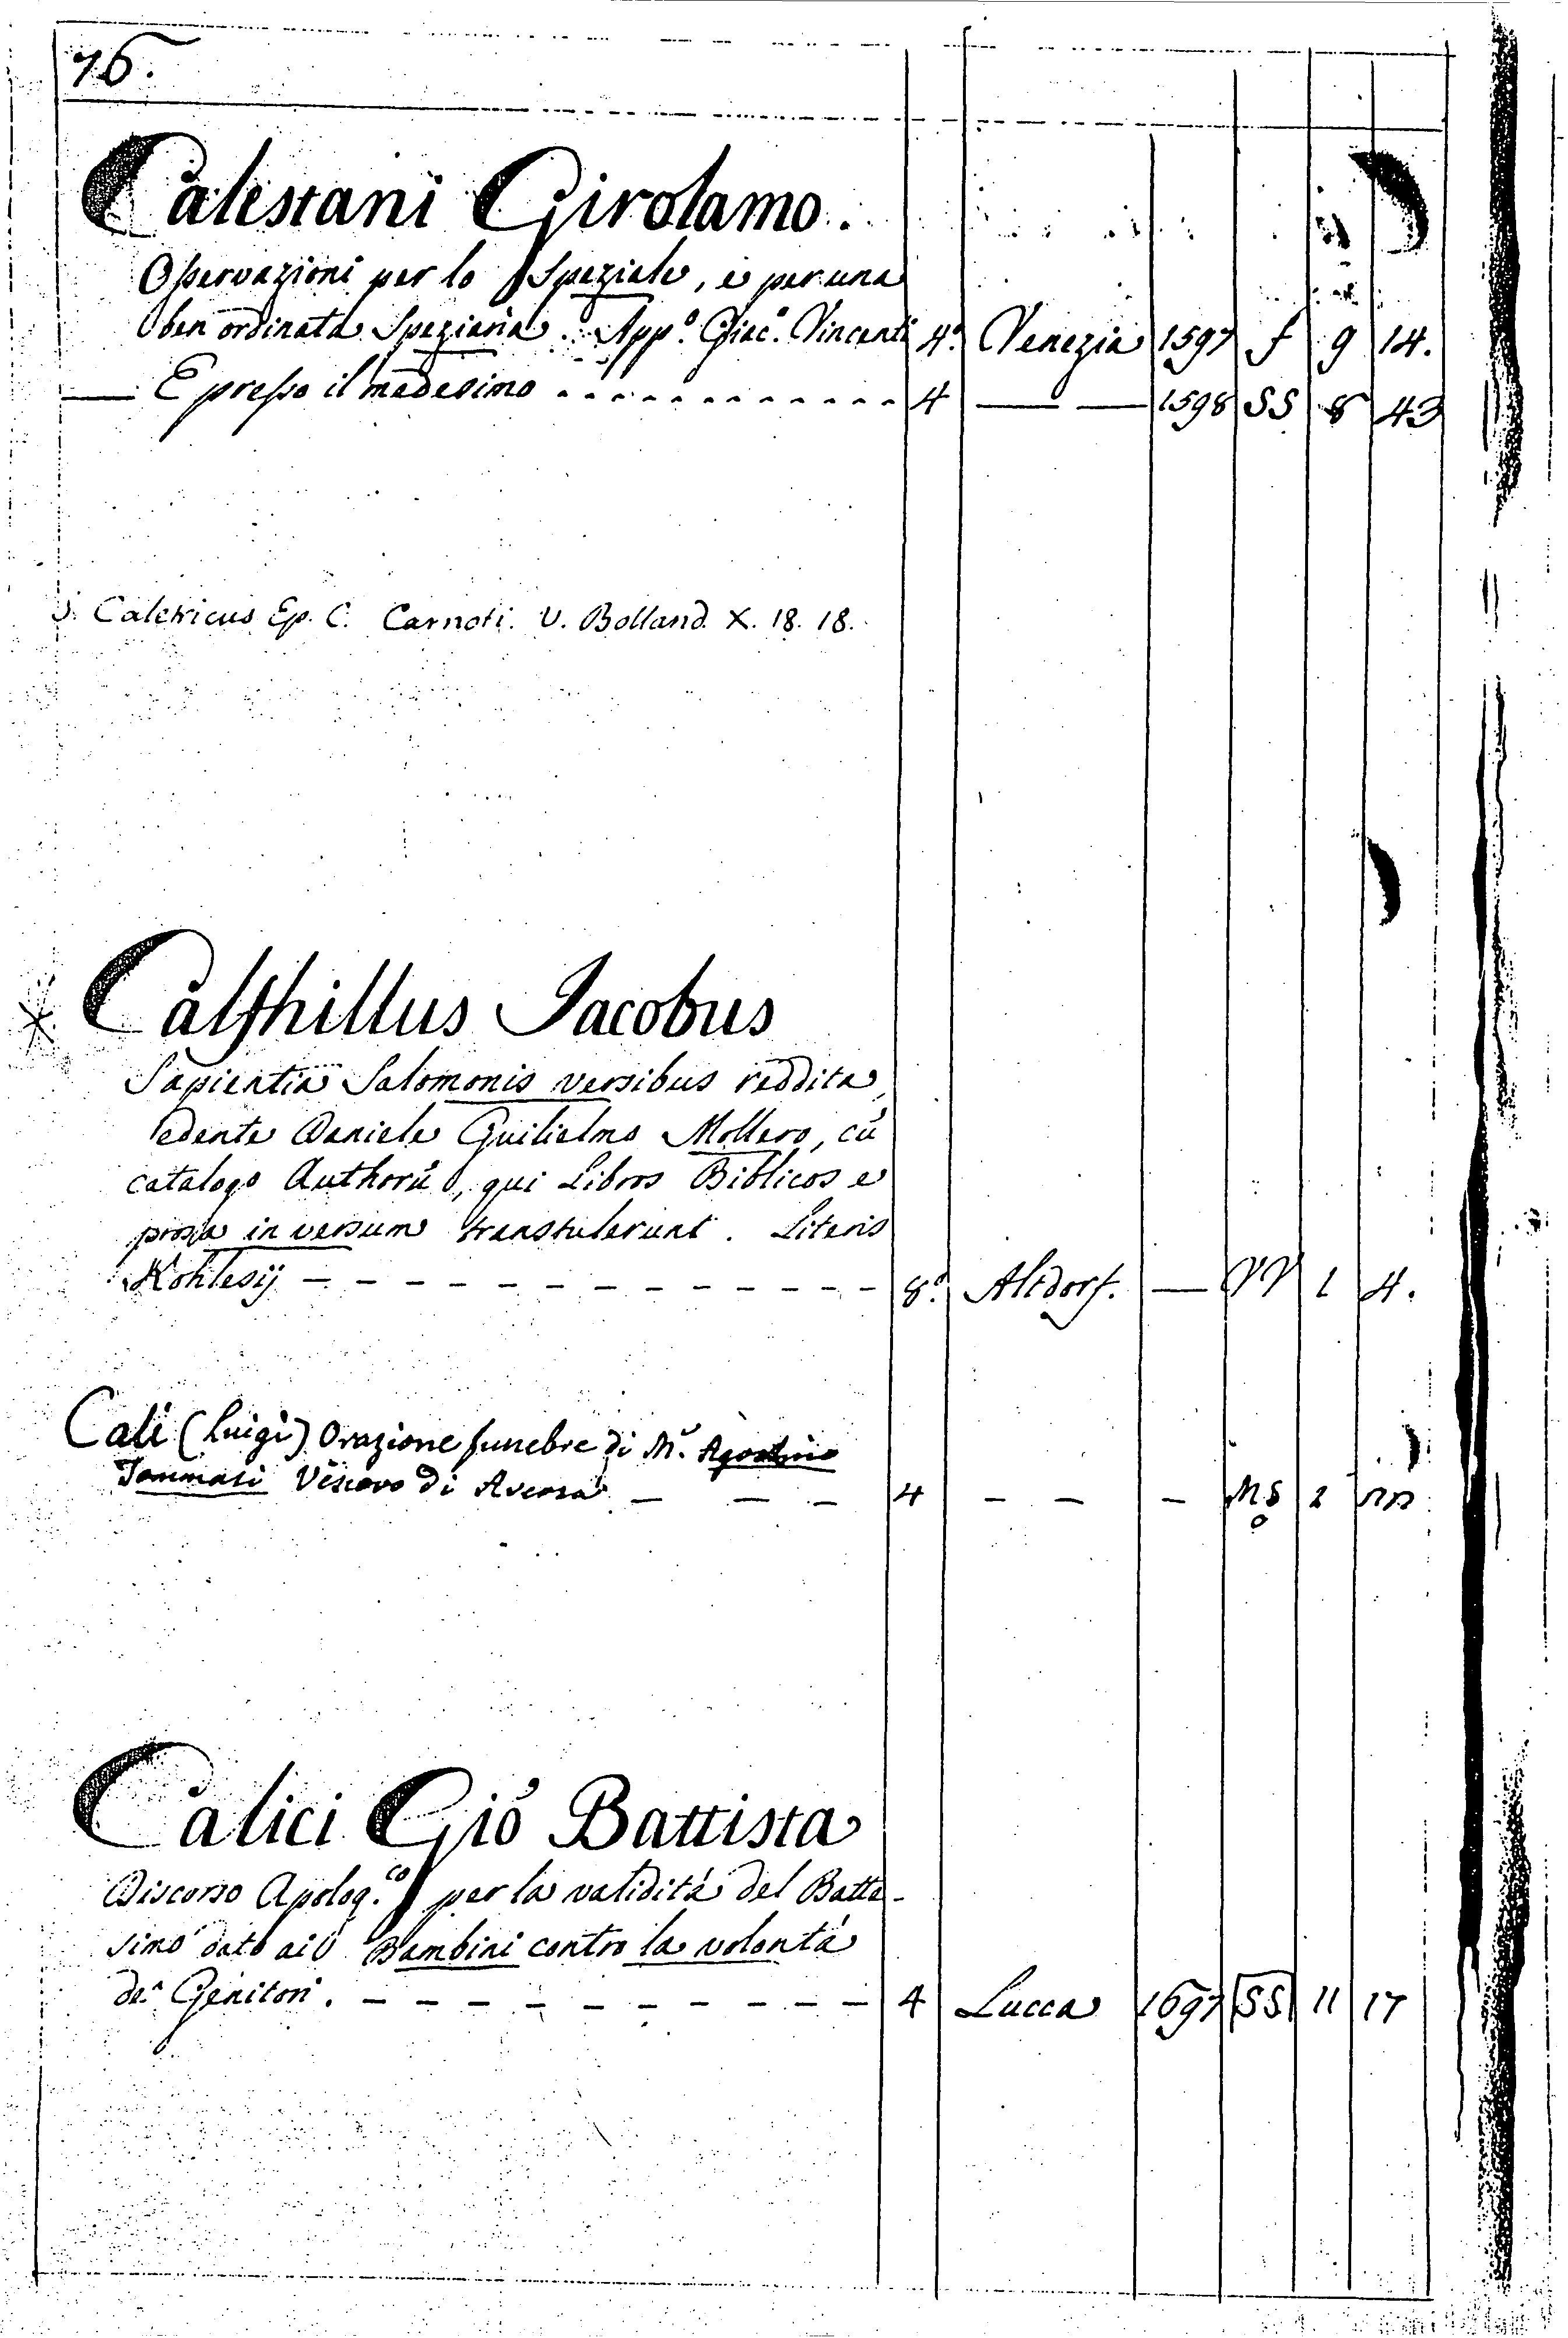 76.
Calestani Girolamo.
Osservazioni per lo Speziale, e per una
ben ordinata Speziaria. App.º Giac.º Vincenti 4º. Venezia 1597 f 9 14.
— E presso il medesimo - - - - - - - - - - - - 4 — — 1598 SS 8 43
S. Caletricus Ep. C. Carnoti. V. Bolland. X. 18. 18.
* Calfhillus Jacobus
Sapientia Salomonis versibus reddita,
edente Daniele Guilielmo Mollero, cū
catalogo Authorū, qui Libros Biblicos e
prosa in versum transtulerunt. Literis
Kohlesij - - - - - - - - - - - 8º. Altdorf. — VV 1 4.
Calì (Luigi) Orazione funebre di M.r Agostino
Tommasi Vescovo di Aversa - - - 4 - - - MS 2
Calici Gio Battista
Discorso Apolog.co per la validità del Batte-
simo dato ai Bambini contro la volontà
de' Genitori. - - - - - - - - - - 4 Lucca 1697 SS 11 17